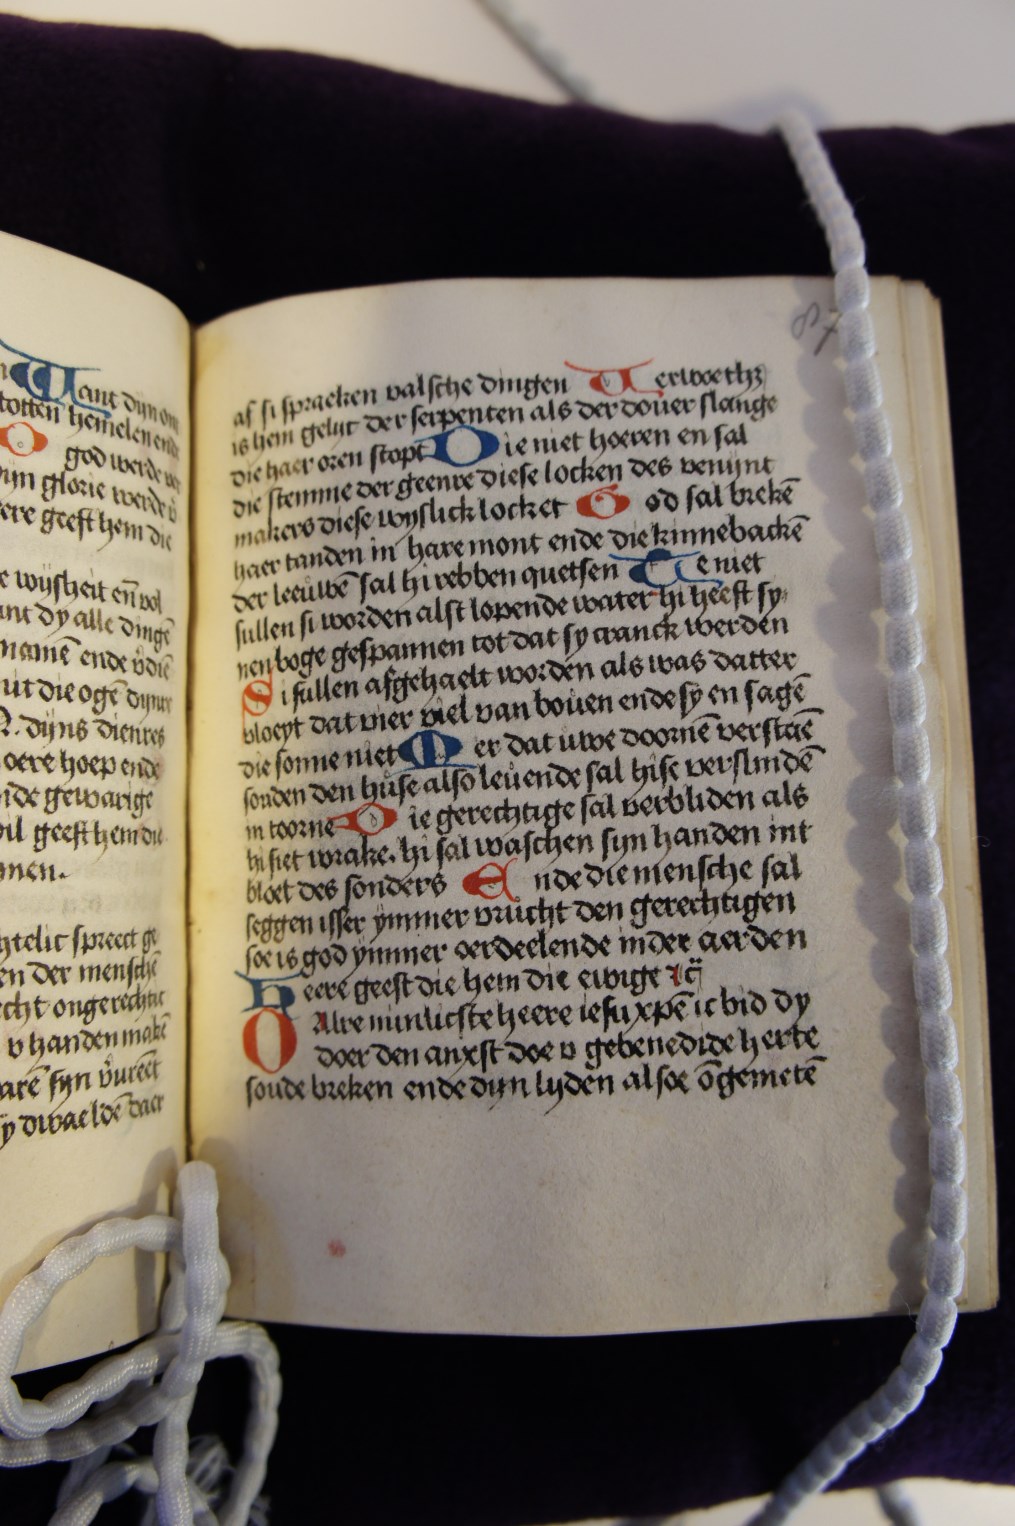 Want dyn om
totten hemelen ende
O god werde ver
ijn glorie werde v̊
ere geeft hem die
e wijsheit en̄ vol
ant dy alle dingē
namē ende v̊diē
ut die ogē dijnre
R. dijns dientes
oere hoep ende
nde gewarige
vil geeft hem die
nnen.
htelic spreect ge
en der menschē
echt ongerechtic
v handen maken
arē syn v̊vreect
y dwaeldē daer
87
af si spraeken valsche dingen Verwoethz
is hem gelijc der serpenten als der douer slange
die haer oren stopt Die niet hoeren en sal
die stemme der geenre diese locken des venijnt
makers diese wyslick locket God sal brekē
haer tanden in hare mont ende die kinnebackē
der leeuwē sal hi rebben quetsen Te niet
sullen si worden alst lopende water hi heeft sy
nen boge gespannen tot dat sy cranck werden
Si sullen afgehaelt worden als was datter
vloeyt dat vier viel van bouen ende sy en sagē
die sonne niet Mer dat uwe doornē verstaē
souden den huse also leuende sal hise verslindē
in toorne Die gerechtige sal verbliden als
hi siet wrake. hi sal waschen syn handen int
bloet des sonders Ende die mensche sal
seggen isser ymmer vrucht den gerechtigen
soe is god ymmer oerdeelende in der aerden
Heere geeft die hem die ewige ⁊c̄
O Alre minlicste heere iesu xp̄e ic bid dy
doer den anxst doe v gebenedide herte
soude breken ende dyn lyden alsoe ōgemetē